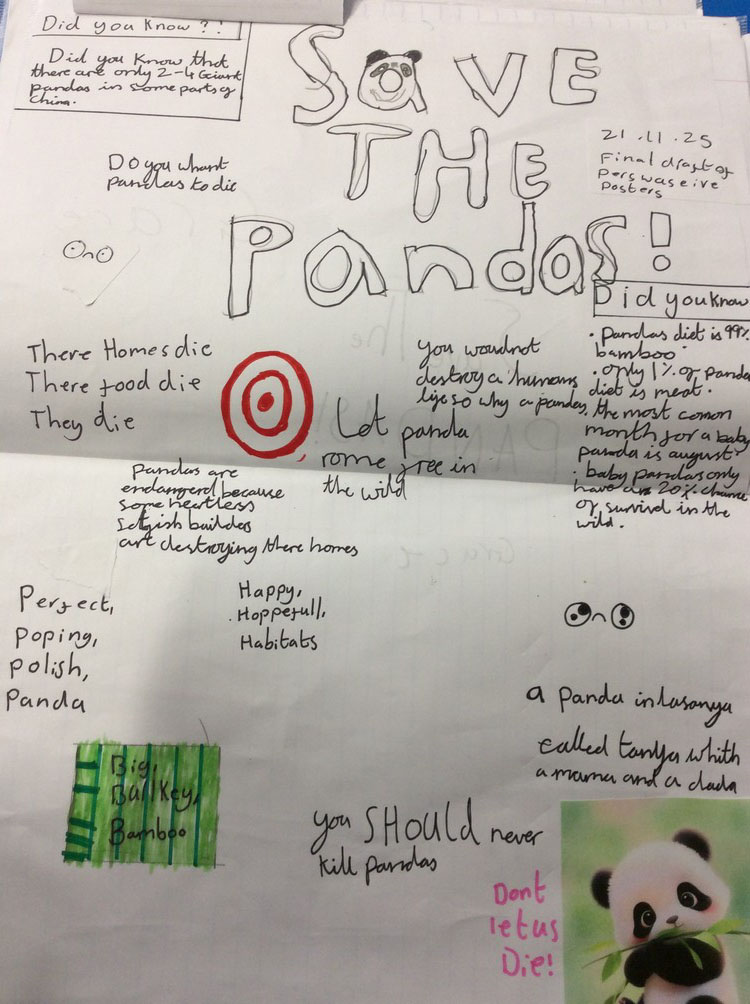 Did you Know ?!
Did you Know that
there are only 2-4 Geiant
pandas in some parts of
China.
SaVE
THE
Pandas!
21.11.25
Final draft of
Perswaseive
Posters
Do you whant
pandas to die
Did you know
• Pandas diet is 99%
bamboo
• only 1% of panda
diet is meat.
the most comon
month for a baby
panda is august.
• baby pandas only
have an 20% chance
of survivd in the
wild.
There Homes die
There food die
They die
you woudnot
destroy a humans
life so why a pandas,
Let panda
rome free in
the wild
Pandas are
endangerd because
some heartless
selfish builders
art destroying there homes
Perfect,
poping,
polish,
Panda
Happy,
Hoppefull,
Habitats
a panda in lasanya
called tanya whith
a mama and a dada
Big,
Bullkey,
Bamboo
you SHOULD never
kill pandas
Dont
let us
Die!